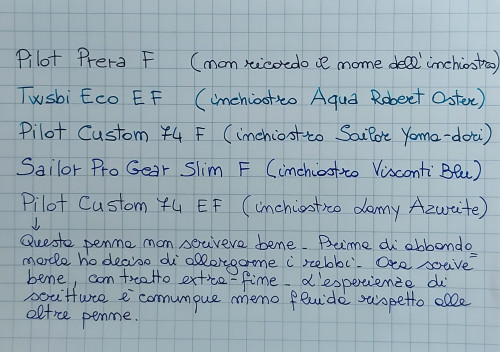 Pilot Prera F (non ricordo il nome dell'inchiostro)
Twsbi Eco EF (inchiostro Aqua Robert Oster)
Pilot Custom 74 F (inchiostro Sailor Yama-dori)
Sailor Pro Gear Slim F (inchiostro Visconti Blu)
Pilot Custom 74 EF (inchiostro Lamy Azurite)
↓
Questa penna non scriveva bene. Prima di abbando=
narla ho deciso di allargarne i rebbi. Ora scrive
bene, con tratto extra-fine. L'esperienza di
scrittura è comunque meno fluida rispetto alle
altre penne.